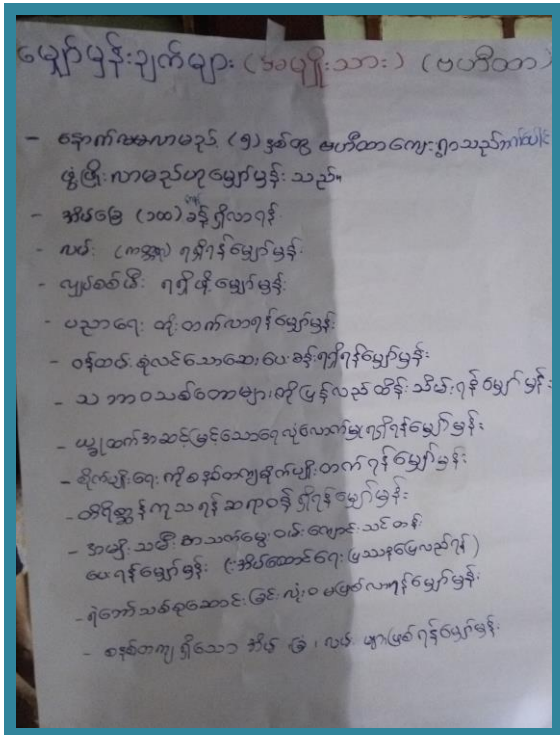 မျှော်မှန်းချက်များ (အမျိုးသား) (ဗဟိတာ)
- နောက်လာမည့် (၅) နှစ်တွင် ဗဟိတာကျေးရွာသည်
ဖွံ့ဖြိုးလာမည်ဟုမျှော်မှန်းသည်။
- အိမ်ခြေ (၁၀၀) ခန့်ရှိလာရန်
- လမ်း (ကတ္တရာ) ရရှိရန်မျှော်မှန်း
- လျှပ်စစ်မီး ရရှိဖို့မျှော်မှန်း
- ပညာရေး တိုးတက်လာရန်မျှော်မှန်း
- ဝန်ထမ်းစုံလင်သောဆေးပေးခန်းရရှိရန်မျှော်မှန်း
- သဘာဝသစ်တောများကိုပြန်လည်ထိန်းသိမ်းရန်မျှော်မှန်း
- ယခုထက်အဆင့်မြင့်သောရေလုံလောက်မှုရရှိရန်မျှော်မှန်း
- စိုက်ပျိုးရေးကိုစနစ်တကျစိုက်ပျိုးတတ်ရန်မျှော်မှန်း
- တိရိစ္ဆာန်ကုသရန်ဆရာဝန်ရှိရန်မျှော်မှန်း
- အမျိုးသမီးအသက်မွေးဝမ်းကျောင်းသင်တန်း
ပေးရန်မျှော်မှန်း (အိမ်ထောင်ရေးပြဿနာပြေလည်ရန်)
- ရံဘော်သစ်ခုဆောင်းခြင်းလုံးဝမဖြစ်လာရန်မျှော်မှန်း
- စနစ်တကျရှိသော အိမ်၊ ခြံ၊ လမ်းများဖြစ်ရန်မျှော်မှန်း